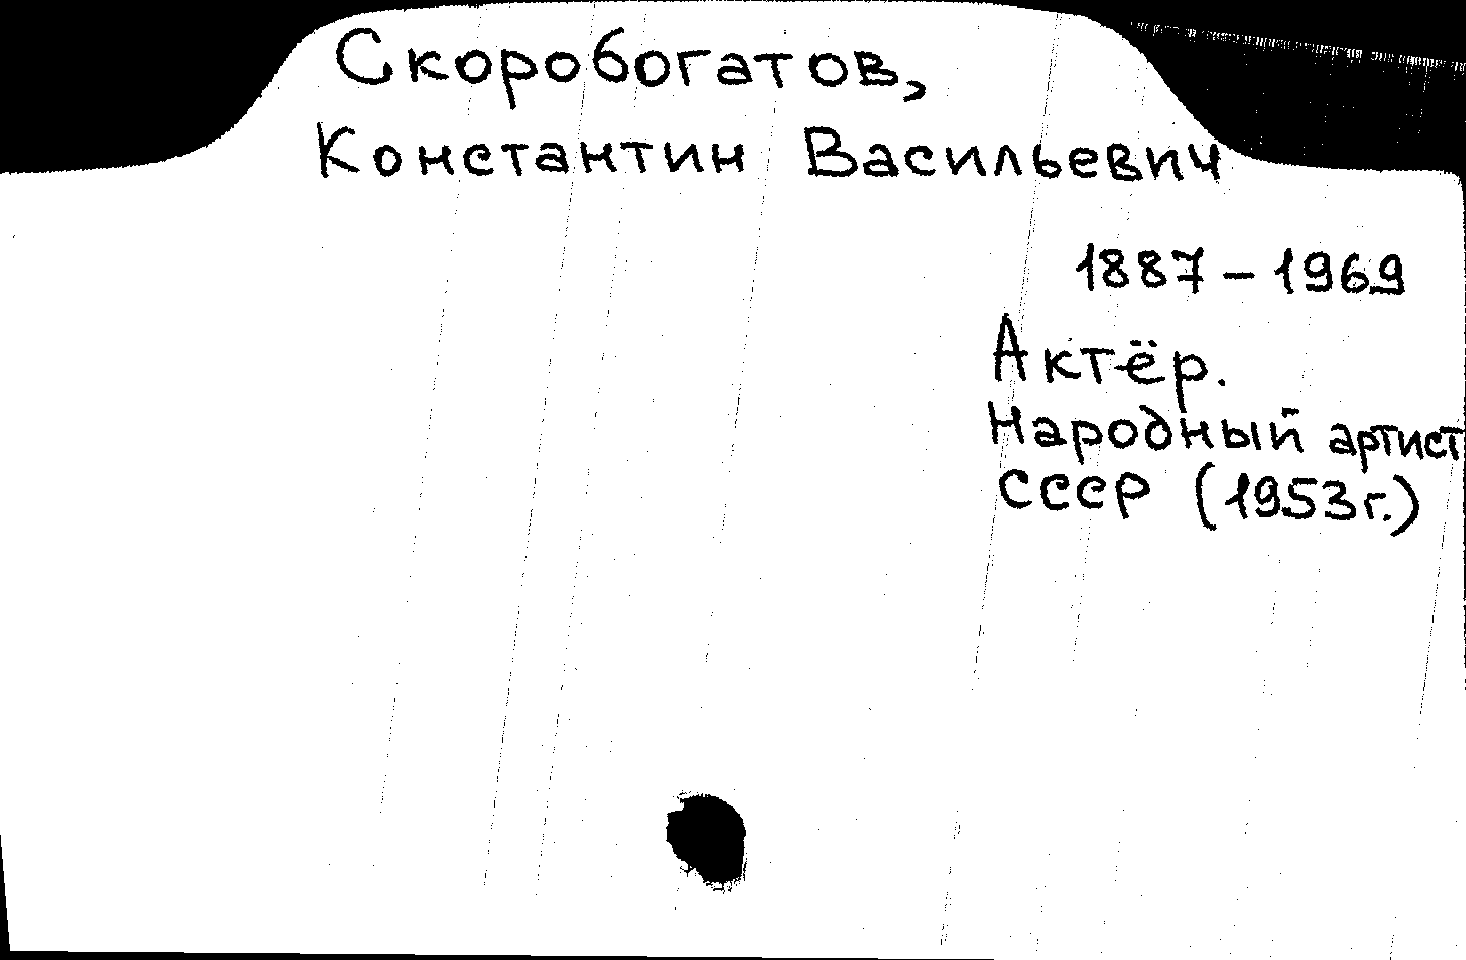 Скоробогатов,
Константин Васильевич
1887 – 1969
Актёр.
Народный артист
СССР (1953г.)